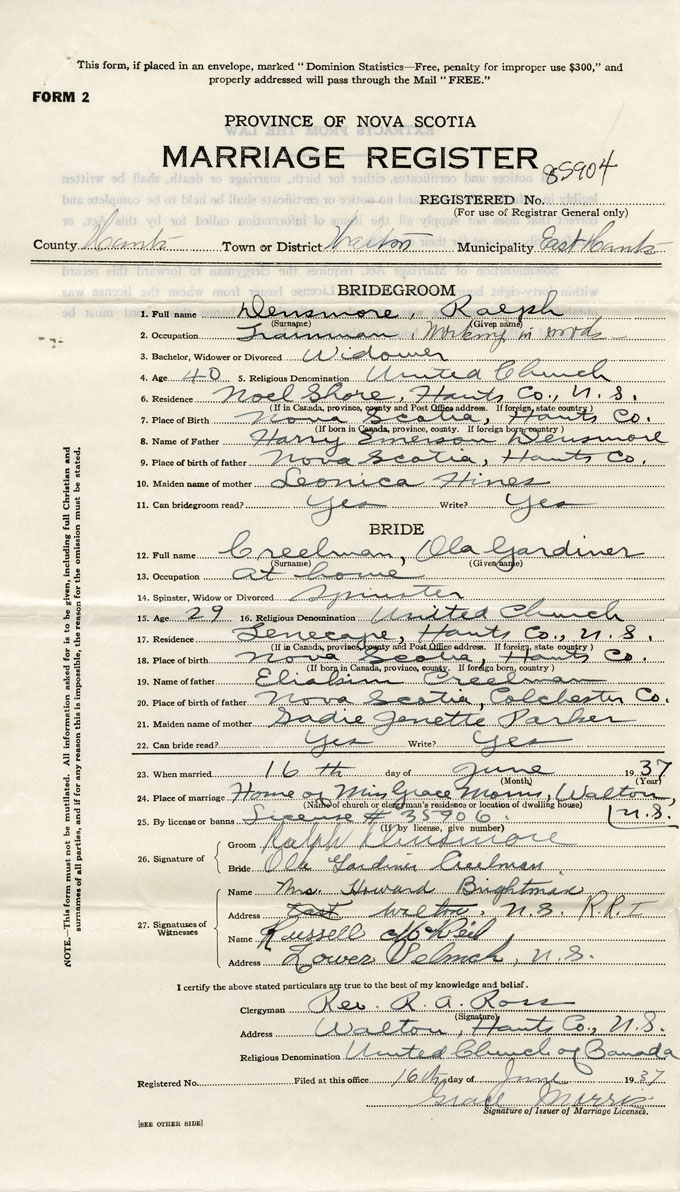 This form, if placed in an envelope, marked "Dominion Statistics—Free, penalty for improper use $300," and
properly addressed will pass through the Mail "FREE."
FORM 2
PROVINCE OF NOVA SCOTIA
MARRIAGE REGISTER
85904
REGISTERED No.
(For use of Registrar General only)
County Hants Town or District Walton Municipality East Hants
BRIDEGROOM
1. Full name Densmore, Ralph
(Surname) (Given name)
2. Occupation Working in woods
3. Bachelor, Widower or Divorced Widower
4. Age 40 5. Religious Denomination United Church
6. Residence Noel Shore, Hants Co., N.S.
(If in Canada, province, county and Post Office address. If foreign, state country)
7. Place of Birth Nova Scotia, Hants Co.
(If born in Canada, province, county. If foreign born, country)
8. Name of Father Harry Emerson Densmore
9. Place of birth of father Nova Scotia, Hants Co.
10. Maiden name of mother Leonica Hines
11. Can bridegroom read? Yes Write? Yes
BRIDE
12. Full name Creelman, Ola Gardiner
(Surname) (Given name)
13. Occupation at home
14. Spinster, Widow or Divorced Spinster
15. Age 29 16. Religious Denomination United Church
17. Residence Tenecape, Hants Co., N.S.
(If in Canada, province, county and Post Office address. If foreign, state country)
18. Place of birth Nova Scotia, Hants Co.
(If born in Canada, province, county. If foreign born, country)
19. Name of father Eliakim Creelman
20. Place of birth of father Nova Scotia, Colchester Co.
21. Maiden name of mother Sadie Jenette Parker
22. Can bride read? Yes Write? Yes
23. When married 16th day of June 1937
(Month) (Year)
24. Place of marriage Home of Miss Grace Morris, Walton, N.S.
(Name of church or clergyman's residence or location of dwelling house)
25. By license or banns License # 35906
(If by license, give number)
26. Signature of
Groom Ralph Densmore
Bride Ola Gardiner Creelman
27. Signatures of Witnesses
Name Mrs. Howard Brightman
Address Walton, N.S. R.R.1
Name Russell McNeil
Address Lower Selmah, N.S.
I certify the above stated particulars are true to the best of my knowledge and belief.
Clergyman Rev. R. A. Ross
(Signature)
Address Walton, Hants Co., N.S.
Religious Denomination United Church of Canada
Registered No. Filed at this office 16th day of June 1937
Grace Morris
Signature of Issuer of Marriage Licenses.
[SEE OTHER SIDE]
NOTE.—This form must not be mutilated. All information asked for is to be given, including full Christian and
surnames of all parties, and if for any reason this is impossible, the reason for the omission must be stated.